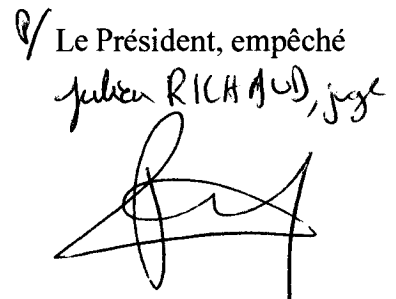 P/ Le Président, empêché
Julien RICHAUD, juge